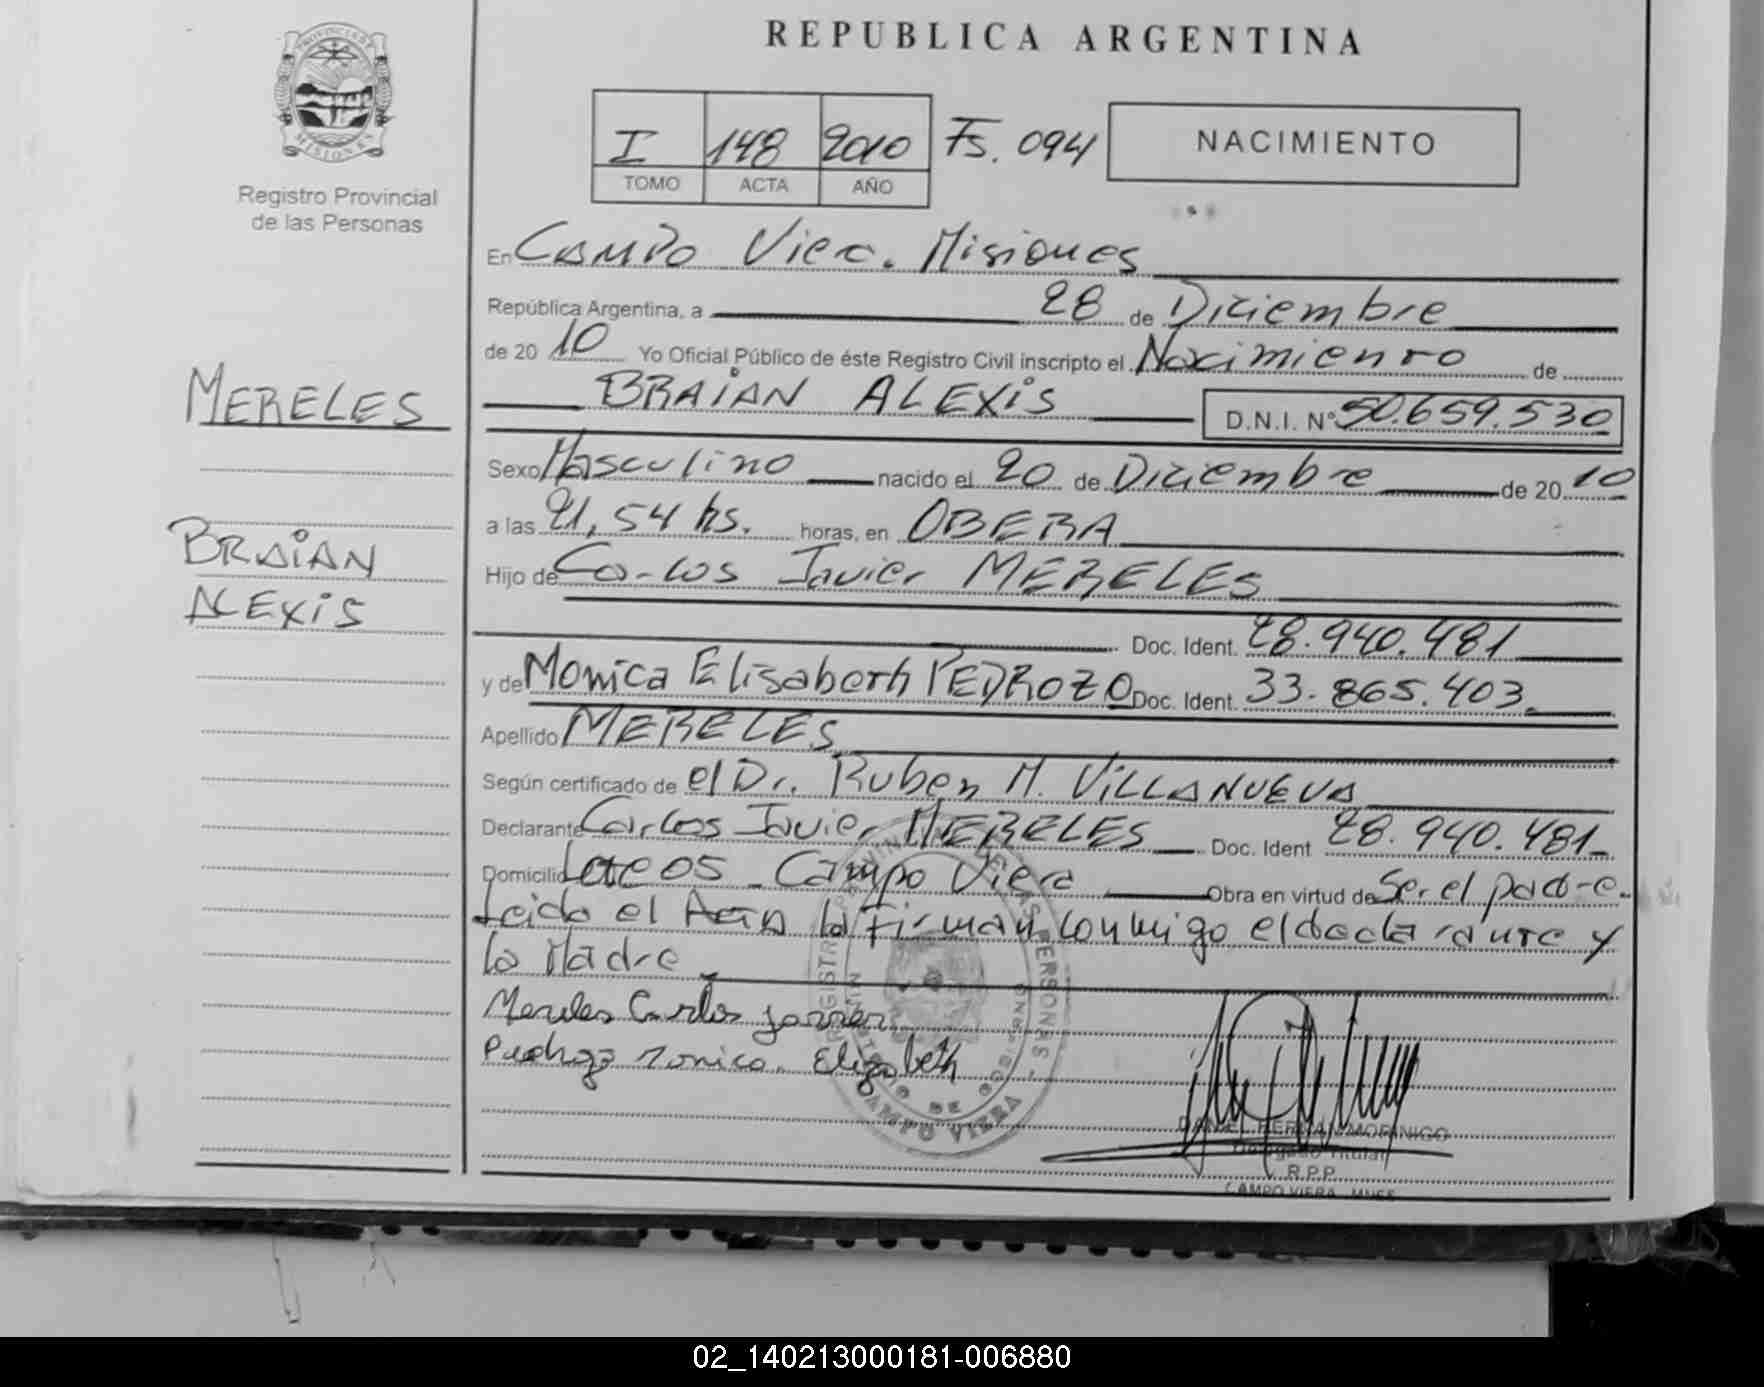 REPUBLICA ARGENTINA
PROVINCIA DE
MISIONES
Registro Provincial
de las Personas
I 148 2010 Fs. 094
TOMO ACTA AÑO
NACIMIENTO
En Campo Viera. Misiones
República Argentina, a 28 de Diciembre
de 20 10 Yo Oficial Público de éste Registro Civil inscripto el Nacimiento de
BRAIAN ALEXIS D.N.I. Nº 50.659.530
MERELES
Sexo Masculino nacido el 20 de Diciembre de 20 10
a las 21,54 hs. horas, en OBERA
BRAIAN
ALEXIS
Hijo de Carlos Javier MERELES
Doc. Ident. 28.940.481
y de Monica Elisabeth PEDROZO Doc. Ident. 33.865.403.
Apellido MERELES
Según certificado de el Dr. Ruben M. VILLANUEVA
Declarante Carlos Javier MERELES Doc. Ident 28.940.481
Domicilio Lote 05 - Campo Viera Obra en virtud de Ser el padre.
Leida el Acta la firman conmigo el declarante y
la Madre
Mereles Carlos Javier
Pedrozo Monica Elizabeth
CAMPO VIERA
DANIEL HERNAN MORINIGO
Delegado Titular
R.P.P.
CAMPO VIERA - MNES
02_140213000181-006880